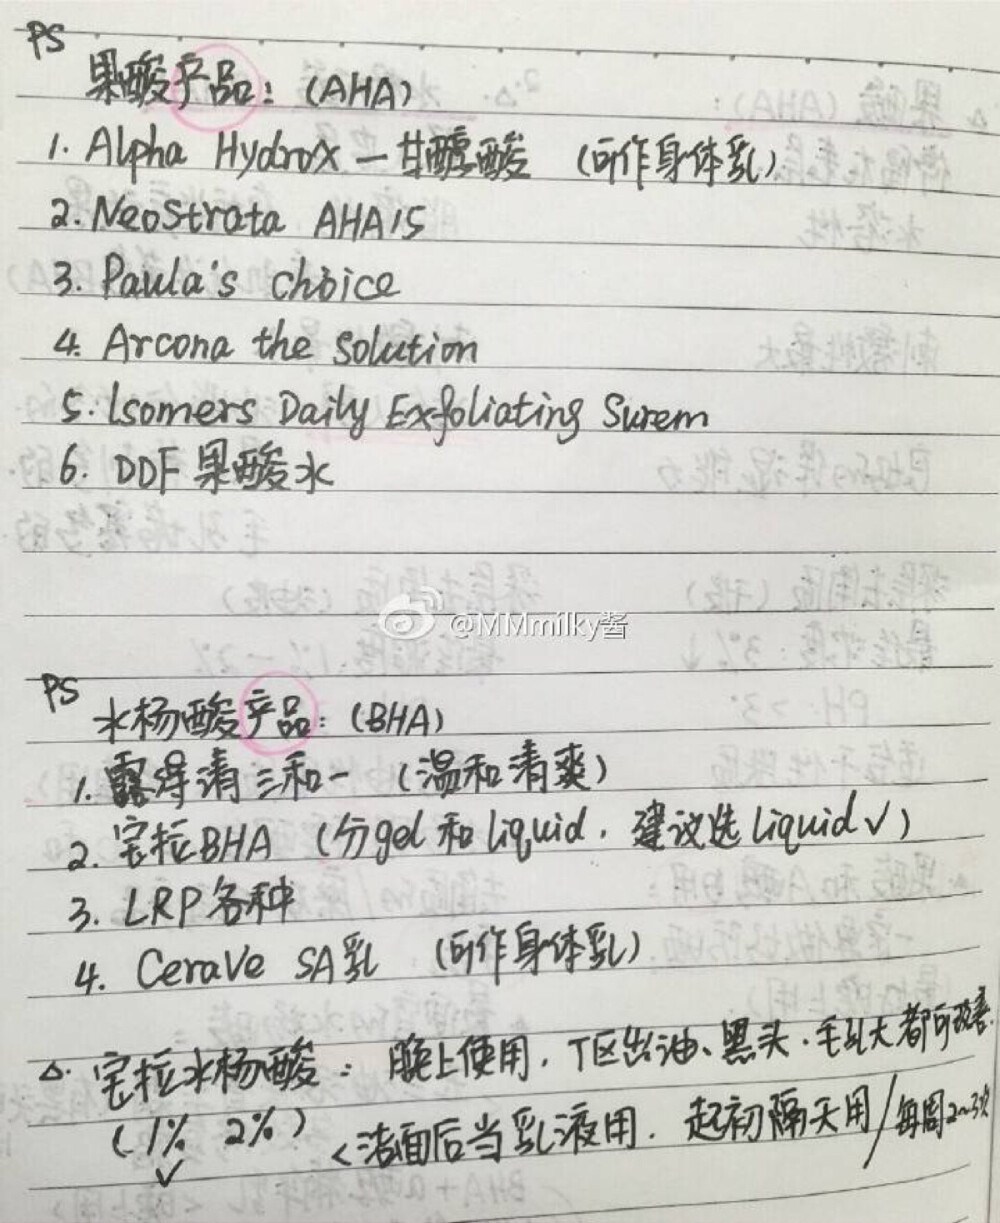 PS
果酸产品：(AHA)
1. Alpha Hydrox — 甘醇酸 (可作身体乳)
2. NeoStrata AHA15
3. Paula's choice
4. Arcona the solution
5. Isomers Daily Exfoliating Surem
6. DDF 果酸水
@MMmilky酱
PS
水杨酸产品：(BHA)
1. 露得清三和一 (温和清爽)
2. 宝拉BHA (分gel 和 liquid，建议选 liquid √)
3. LRP 各种
4. CeraVe SA乳 (可作身体乳)
△. 宝拉水杨酸：晚上使用，T区出油、黑头、毛孔大都可改善
(1% 2%) <洁面后当乳液用．起初隔天用/每周2~3次
√